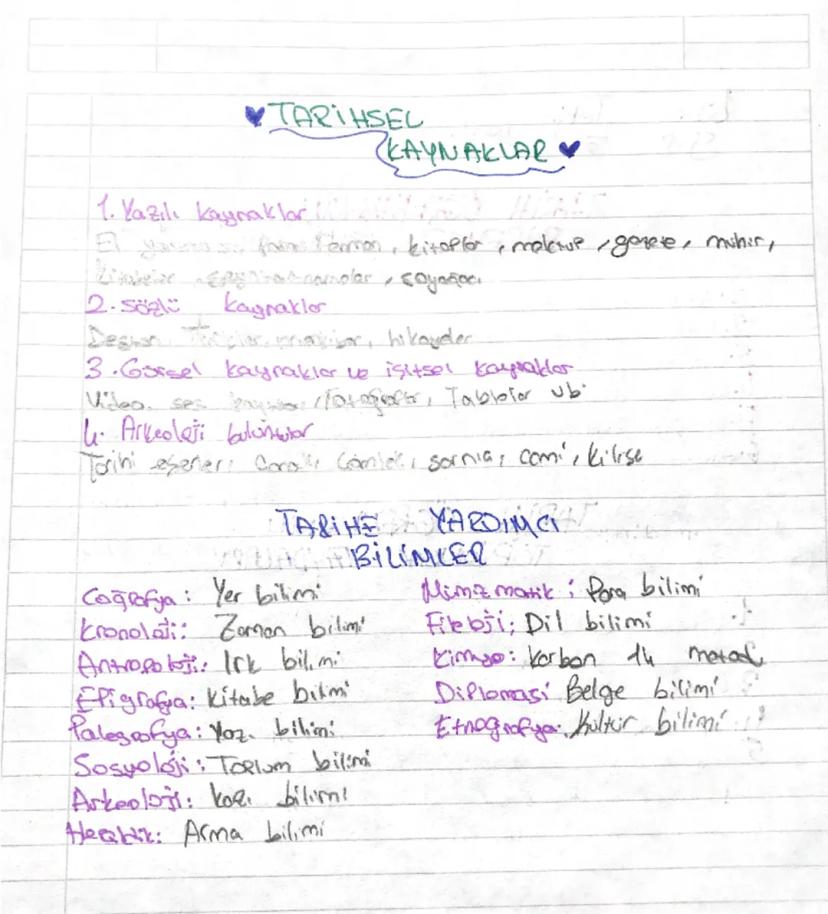 TARİHSEL
KAYNAKLAR
1. Yazılı kaynaklar
El ferman, kitaplar, mektup, gazete, mühür,
2. Sözlü kaynaklar
Destan, hikayeler
3. Görsel kaynaklar ve işitsel kaynaklar
Video, ses Fotoğraflar, Tablolar vb.
4. Arkeoloji buluntular
Tarihi eserler, Çanak, Çömlek, sarnıç, cami, kilise
TARİHE YARDIMCI
BİLİMLER
Coğrafya: Yer bilimi
Kronoloji: Zaman bilimi
Antropoloji: Irk bilimi
Epigrafya: Kitabe bilimi
Paleografya: Yazı bilimi
Sosyoloji: Toplum bilimi
Arkeoloji: Kazı bilimi
Heraldik: Arma bilimi
Nümizmatik: Para bilimi
Filoloji: Dil bilimi
Kimya: Karbon 14 metod
Diplomasi Belge bilimi
Etnografya: Kültür bilimi